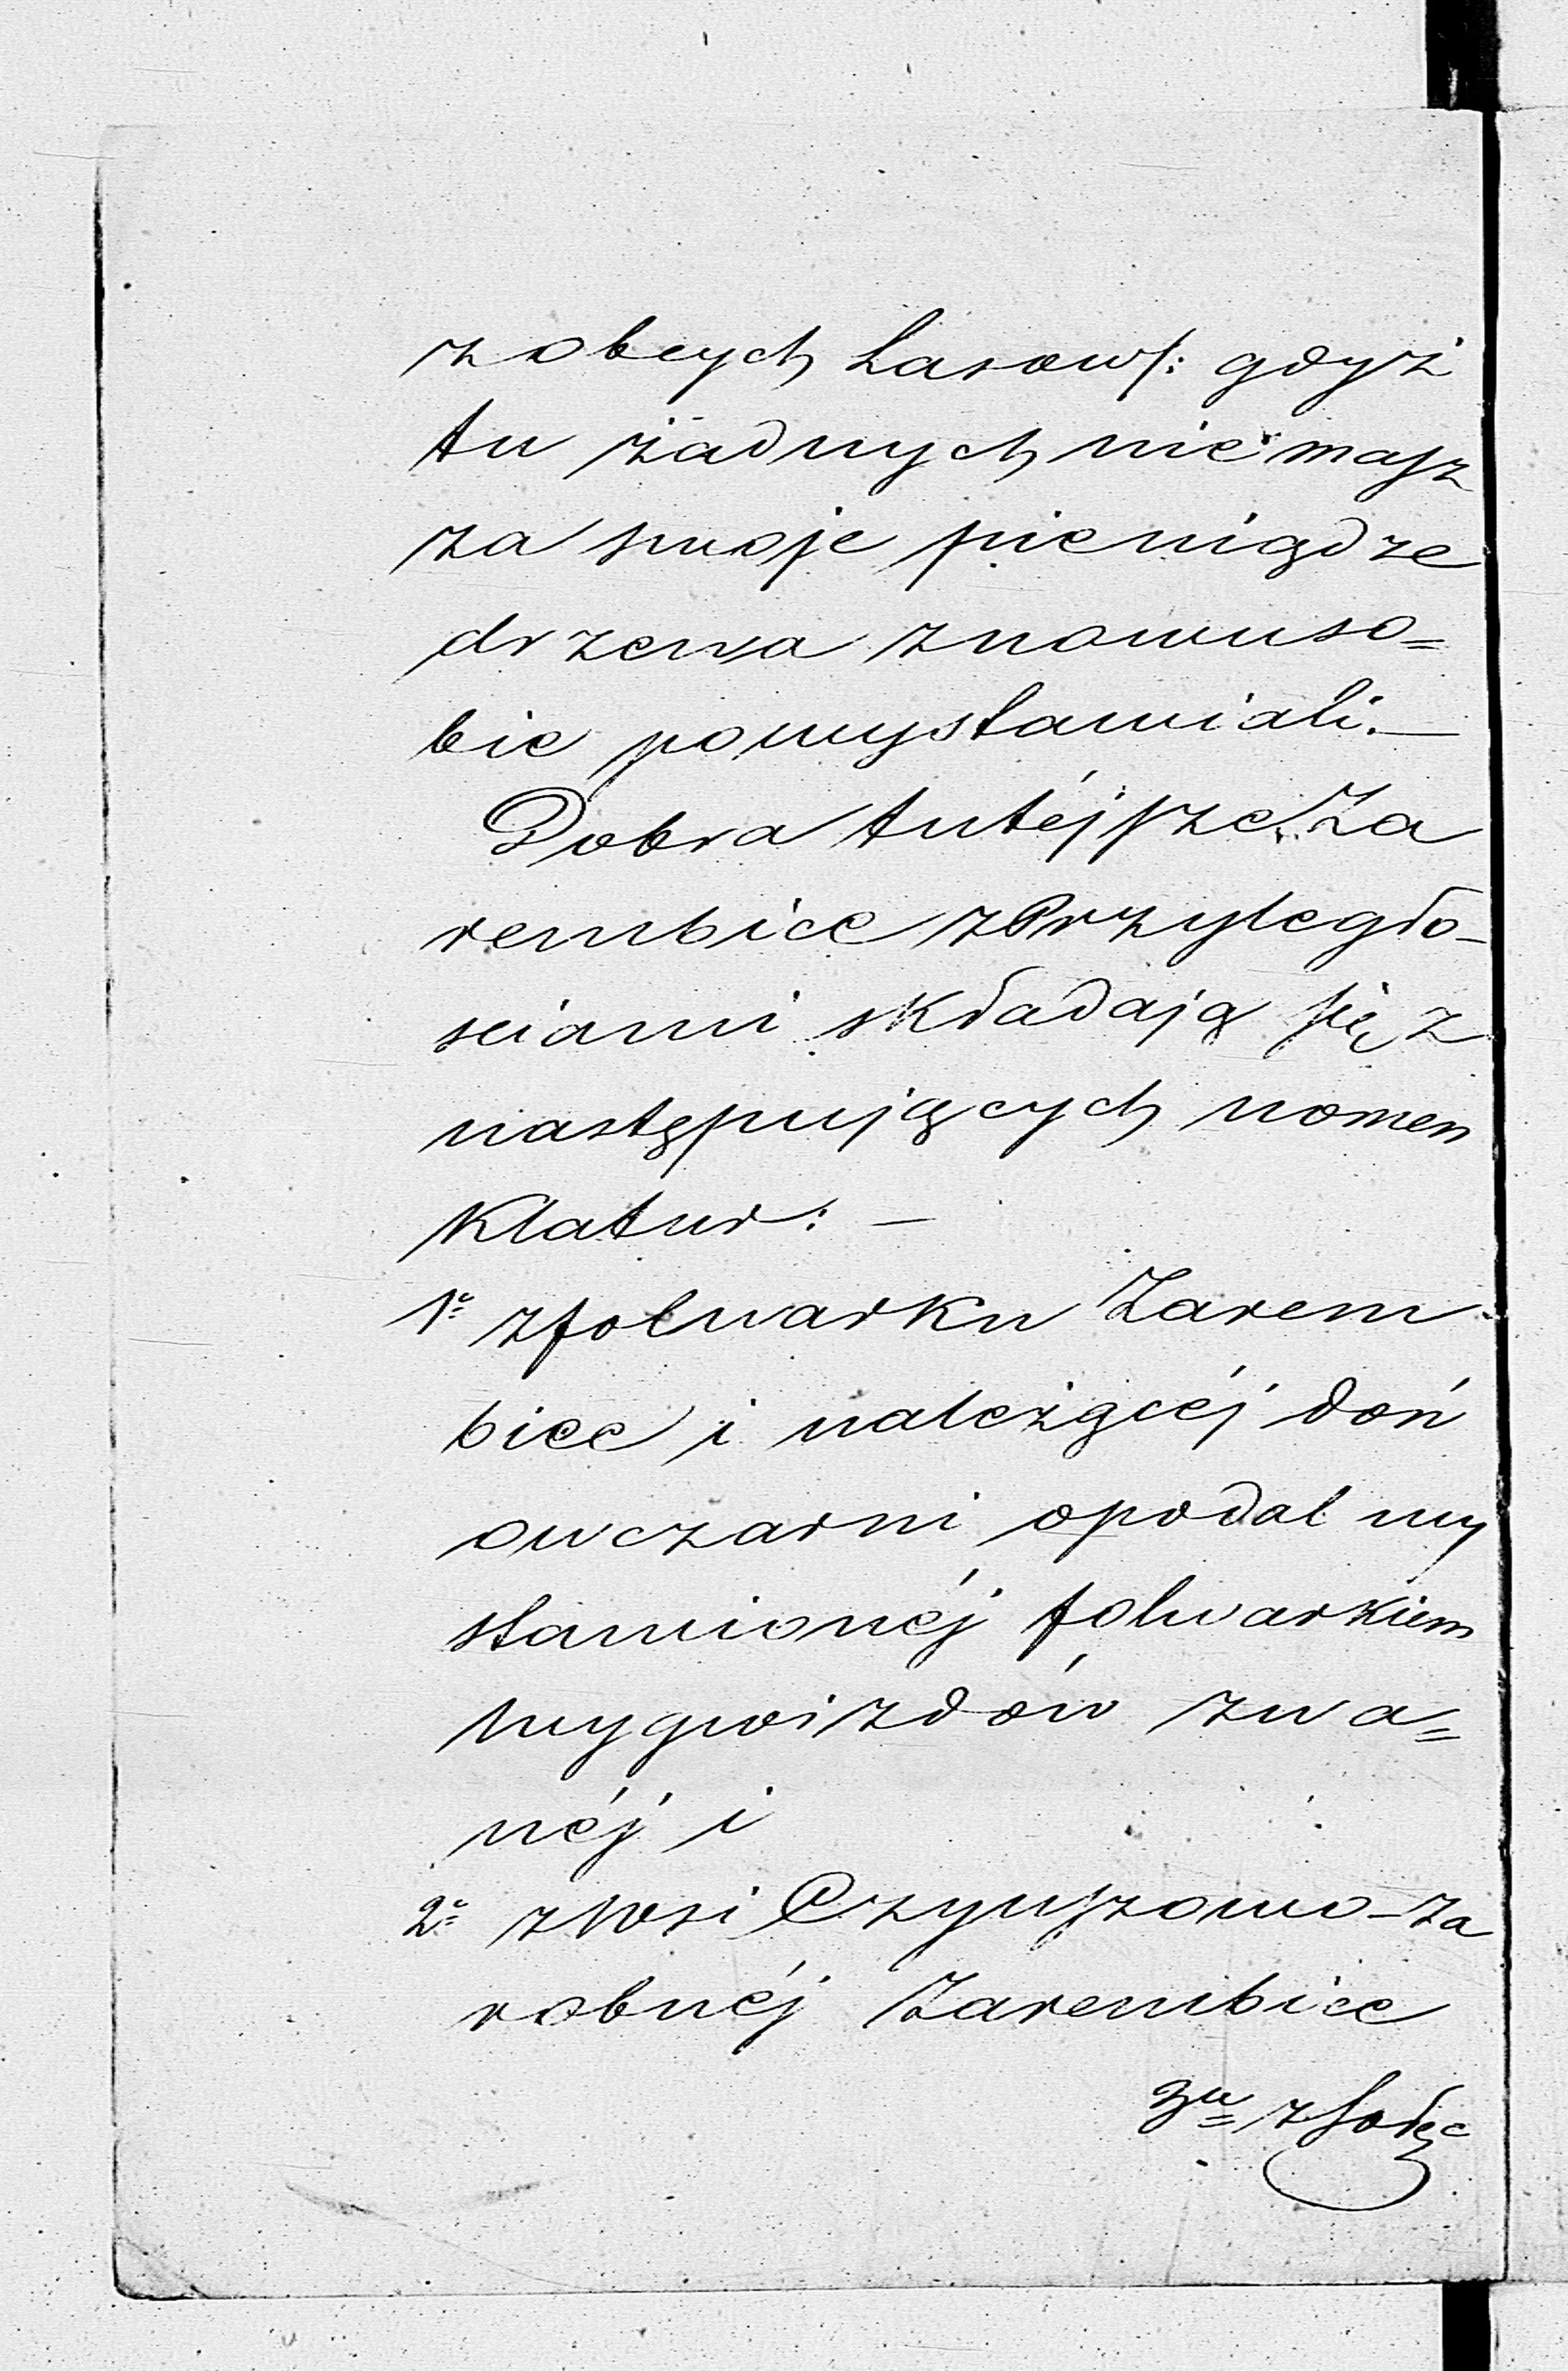 z obcych Lasow/: gdyż
tu żadnych nie masz
za swoje pieniądze
drzewa znowu so=
bie powystawiali. —
Dobra tutéjsze Za
rembice z Przyległo-
sciami składają się z
następujących nomen
klatur: —
1e z folwarku Zarem-
bice i należącéj doń
owczarni opodal wy
stawionéj folwarkiem
Wygwizdów zwa=
néj i
2e z Wsi Czynszowo-za
robnéj Zarembice